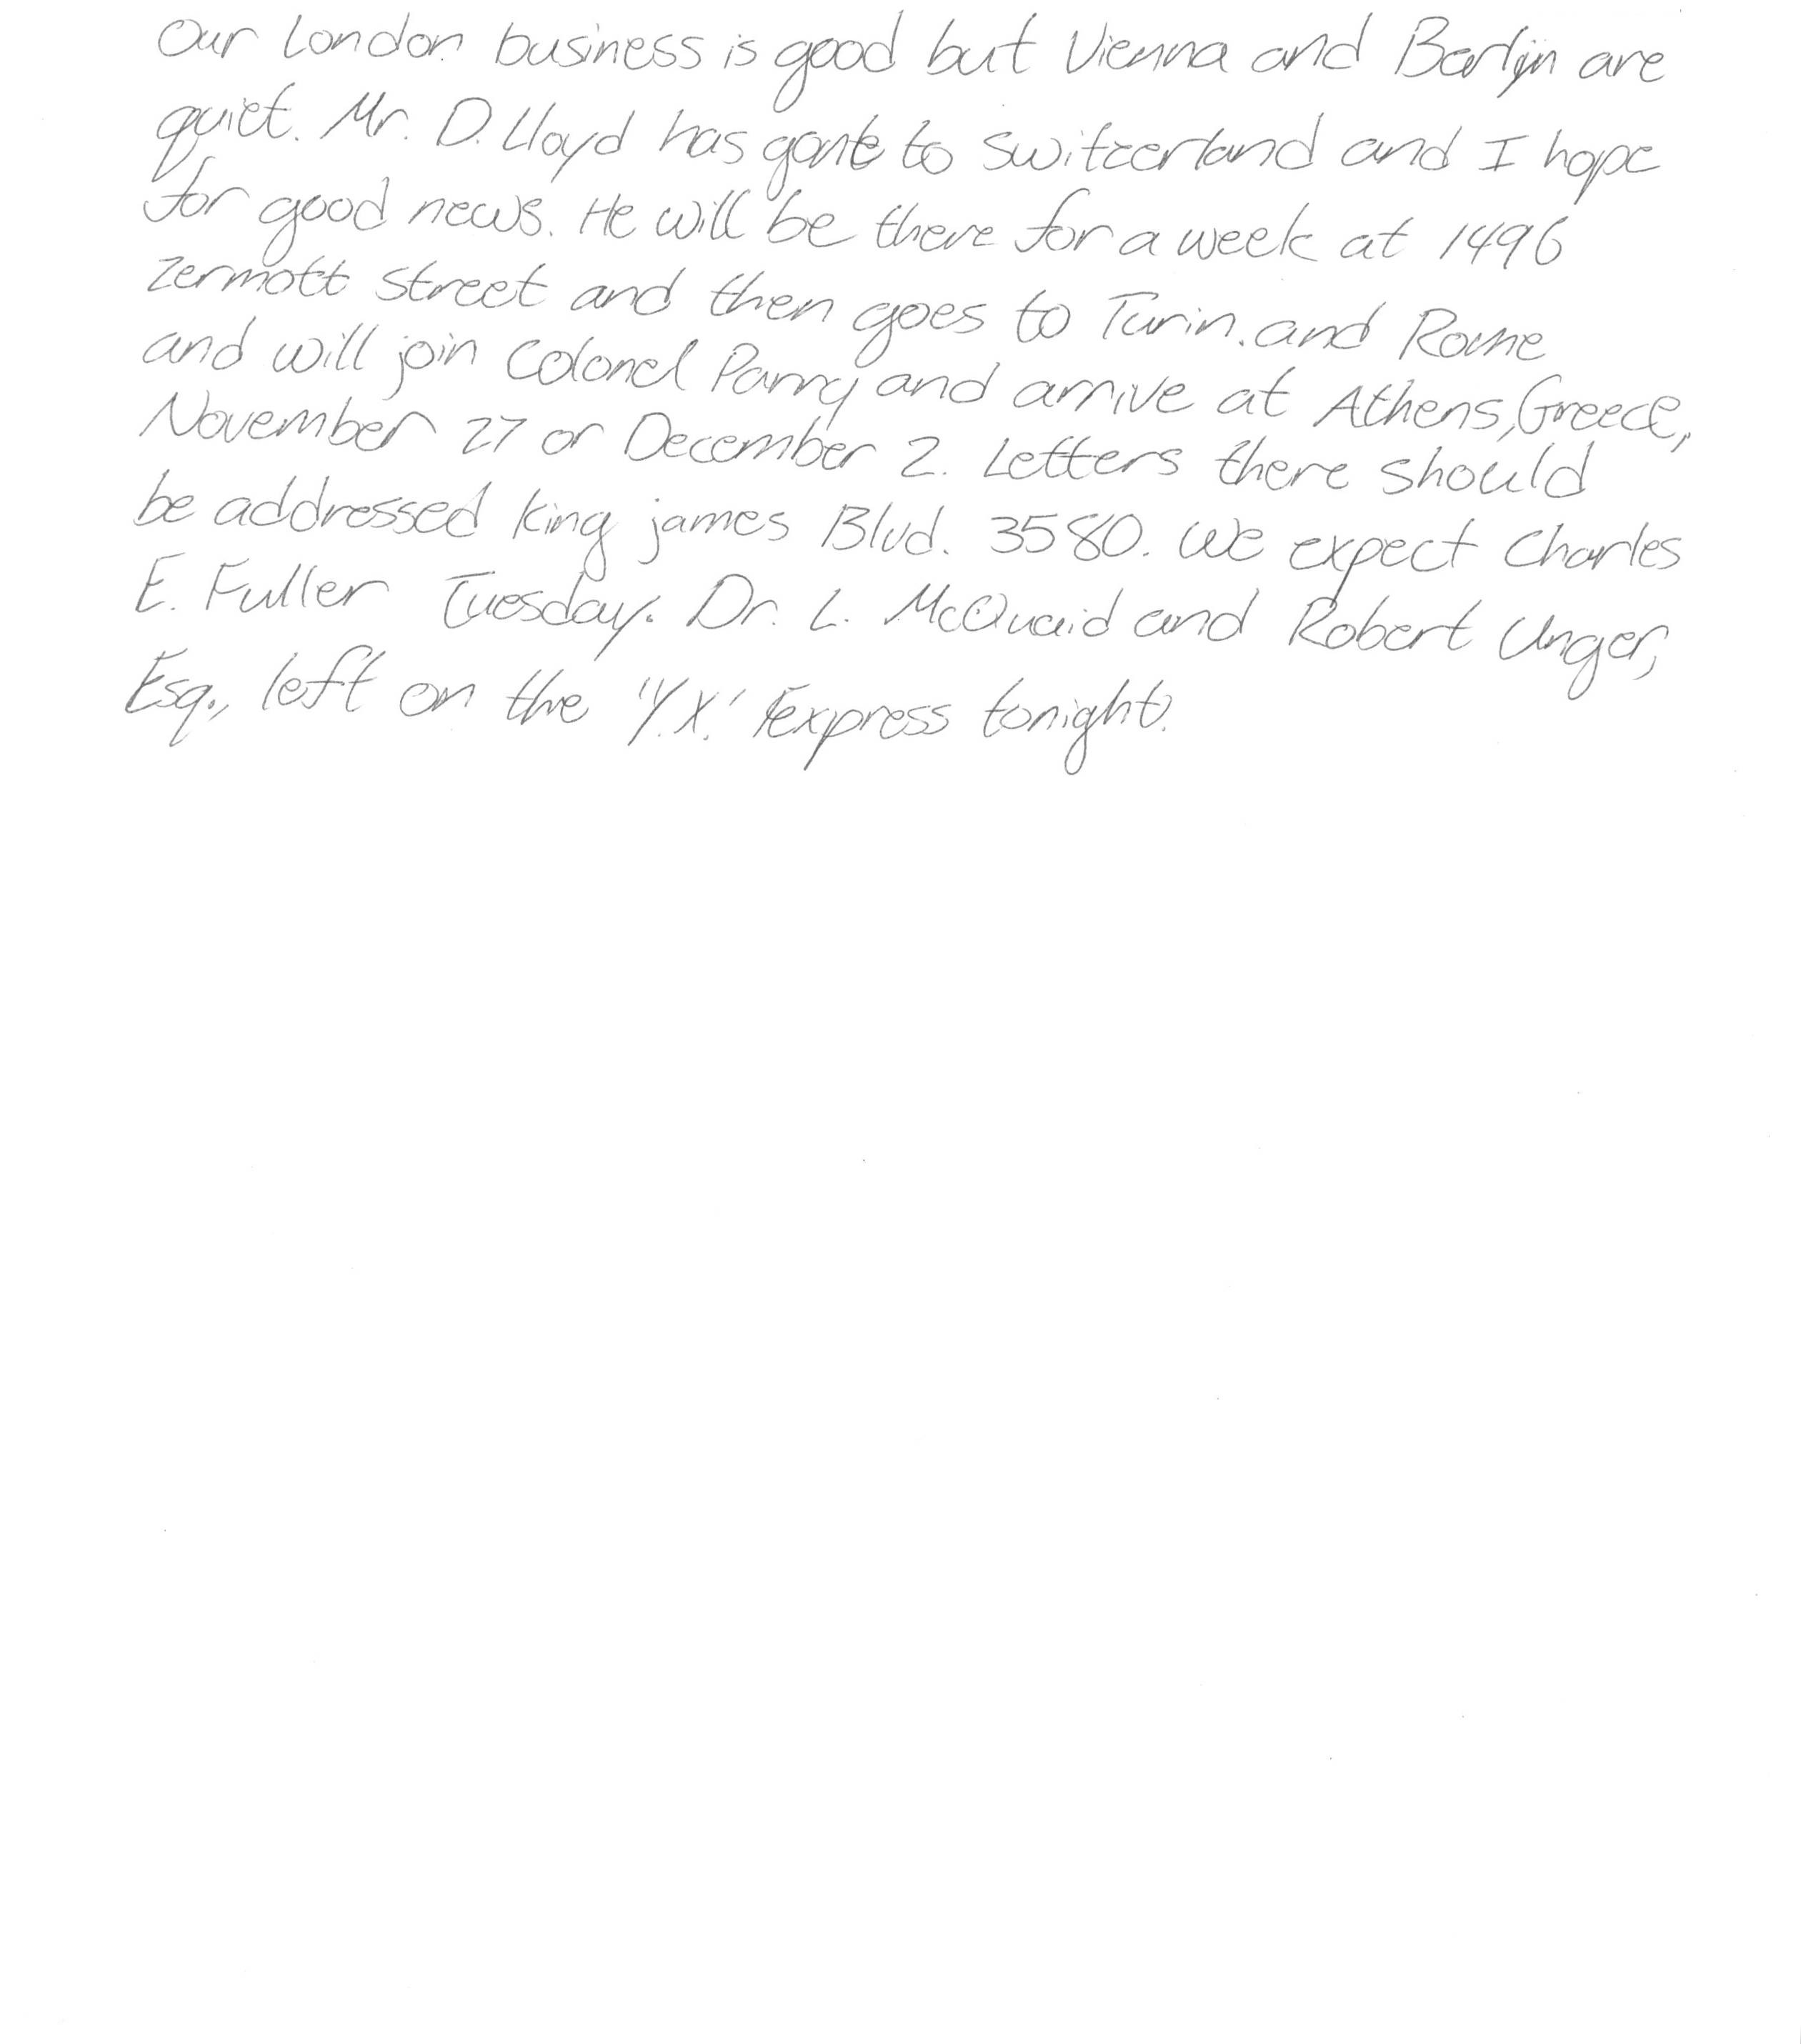 Our London business is good but Vienna and Berlin are
quiet. Mr. D. Lloyd has gone to Switzerland and I hope
for good news. He will be there for a week at 1496
Zermott Street and then goes to Turin. and Rome
and will join Colonel Parry and arrive at Athens, Greece,
November 27 or December 2. Letters there should
be addressed King James Blvd. 3580. We expect Charles
E. Fuller Tuesday. Dr. L. McQuaid and Robert Unger,
Esq., left on the 'Y.X.' Express tonight.